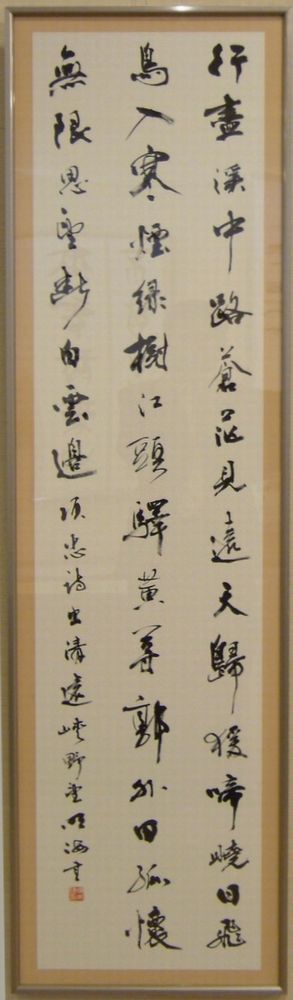 行盡溪中路蒼茫見遠天歸猿啼曉日飛
鳥入寒煙綠樹江頭驛黃茅郭外田孤懷
無限思望斷白雲邊項忠詩出清遠峽野